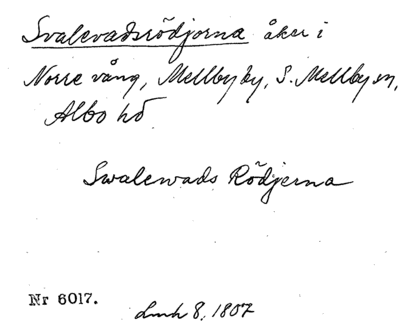 Svalevadsrödjorna åker i
Norre vång, Mellby by, S. Mellby sn,
Albo hd
Swalewads Rödjerna
Nr 6017.
Lmh 8, 1807